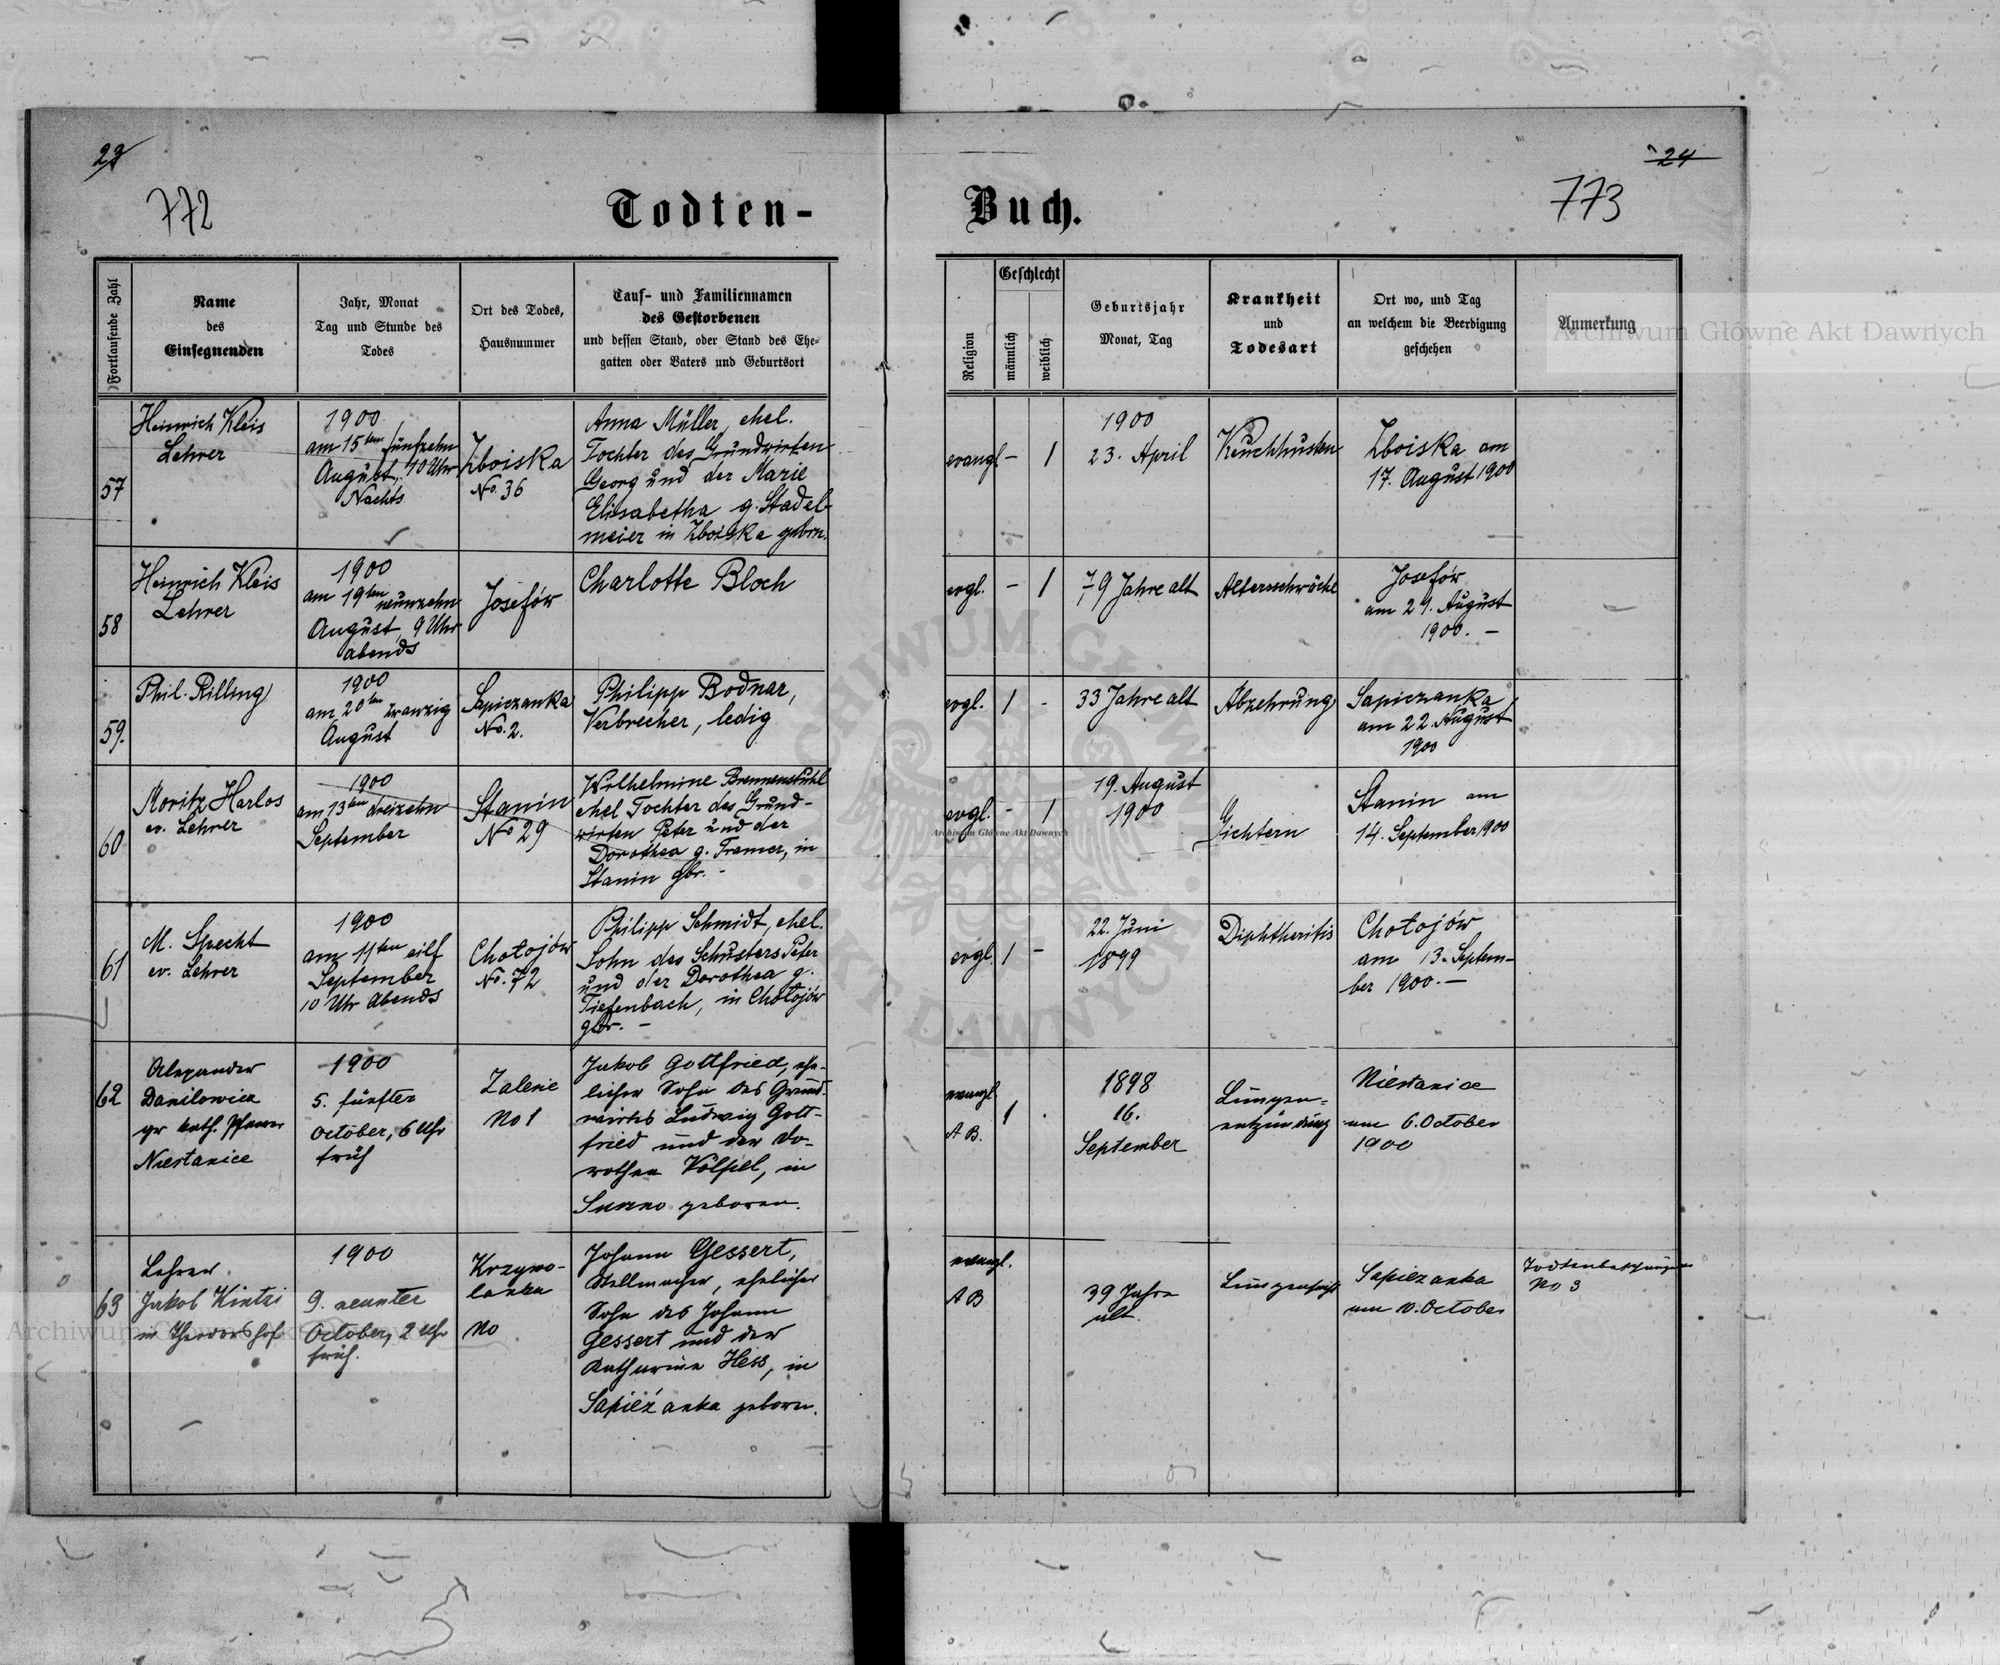 23
772
Todten-
Buch.
24
773
Fortlaufende Zahl
Name
des
Einsegnenden
Jahr, Monat
Tag und Stunde des
Todes
Ort des Todes,
Hausnummer
Tauf- und Familiennamen
des Gestorbenen
und dessen Stand, oder Stand des Ehe-
gatten oder Vaters und Geburtsort
Religion
Geschlecht
männlich
weiblich
Geburtsjahr
Monat, Tag
Krankheit
und
Todesart
Ort wo, und Tag
an welchem die Beerdigung
geschehen
Anmerkung
57
Heinrich Kleis
Lehrer
1900
am 15ten fünfzehn
August, 10 Uhr
Nachts
Zboiska
No. 36
Anna Müller, ehel.
Tochter des Grundwirten
Georg und der Marie
Elisabetha g. Stadel-
meier in Zboiska geborn.
evangl
-
1
1900
23. April
Keuchhusten
Zboiska am
17. August 1900
58
Heinrich Kleis
Lehrer
1900
am 19ten neunzehn
August, 9 Uhr
abends
Josefów
Charlotte Bloch
evgl.
-
1
79 Jahre alt
Altersschwäche
Josefów
am 21. August
1900. -
59.
Phil. Rilling
1900
am 20ten zwanzig
August
Sapiezanka
No. 2.
Philipp Bodnar,
Verbrecher, ledig
evgl.
1
-
33 Jahre alt
Abzehrung
Sapiezanka
am 22. August
1900
60
Moritz Harlos
ev. Lehrer
1900
am 13ten dreizehn
September
Stanin
No 29
Wilhelmine Brennenstuhl
ehel Tochter des Grund-
wirten Peter und der
Dorothea g. Framer, in
Stanin gbr. -
evgl.
-
1
19. August
1900
Gichtern
Stanin am
14. September 1900
61
M. Specht
ev. Lehrer
1900
am 11ten eilf
September
10 Uhr Abends
Chołojów
No. 72
Philipp Schmidt, ehel.
Sohn des Schusters Peter
und der Dorothea g.
Tiefenbach, in Chołojów
gbr. -
evgl.
1
-
22. Juni
1899
Diphtheritis
Chołojów
am 13. Septem-
ber 1900. -
62
Alexander
Danilowicz
gr kath. Pfarrer
Niestanice
1900
5. fünfter
October, 6 Uhr
früh
Zalesie
No 1
Jakob Gottfried, ehe-
licher Sohn des Grund-
wirths Ludwig Gott-
fried und der Do-
rothea Völpel, in
geboren.
evangl.
A B.
1
1898
16.
September
Lungen-
entzündung
Niestanice
am 6. October
1900
63
Lehrer
Jakob Kintzi
in Theodorshof
1900
9. neunter
October, 2 Uhr
früh.
Krzywo-
lanka
No
Johann Gessert,
Stellmacher, ehelicher
Sohn des Johann
Gessert und der
Katharina Hess, in
Sapieżanka geboren.
evangl.
A B
39 Jahre
alt.
Lungensucht
Sapiezanka
am 10. October
No 3
Archiwum Główne Akt Dawnych
Archiwum Główne Akt Dawnych
Archiwum Główne Akt Dawnych